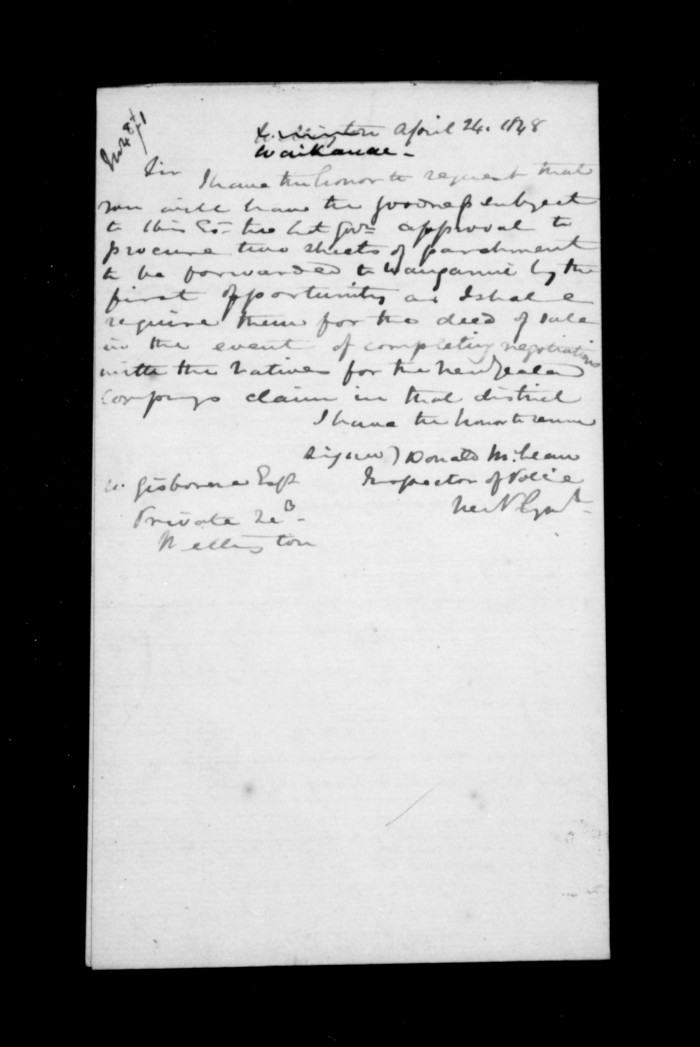 No 48/1
Wellington April 24. 1848
Waikanae -
Sir
I have the honor to request that
you will have the goodness subject
to His Ex- the Lt Govrs approval to
procure two sheets of parchment
to be forwarded to Wanganui by the
first opportunity as I shall
require them for the deed of sale
in the event of completing negotiations
with the Natives for the New Zealand
Companys claim in that district
I have the honor to remain
Signed) Donald McLean
Inspector of Police
W. Gisborne Esqr
Private Se
Wellington